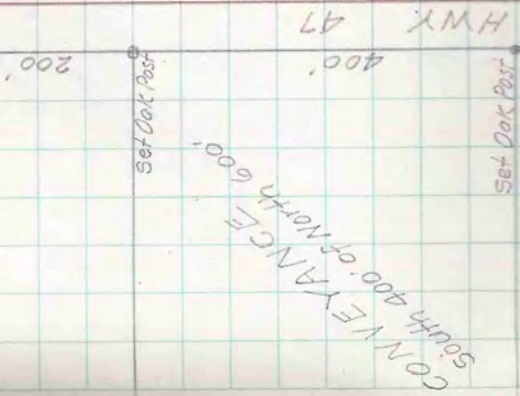 HWY 47
200'
400'
Set Oak Post
Set Oak Post
CONVEYANCE
South 400' of North 600'